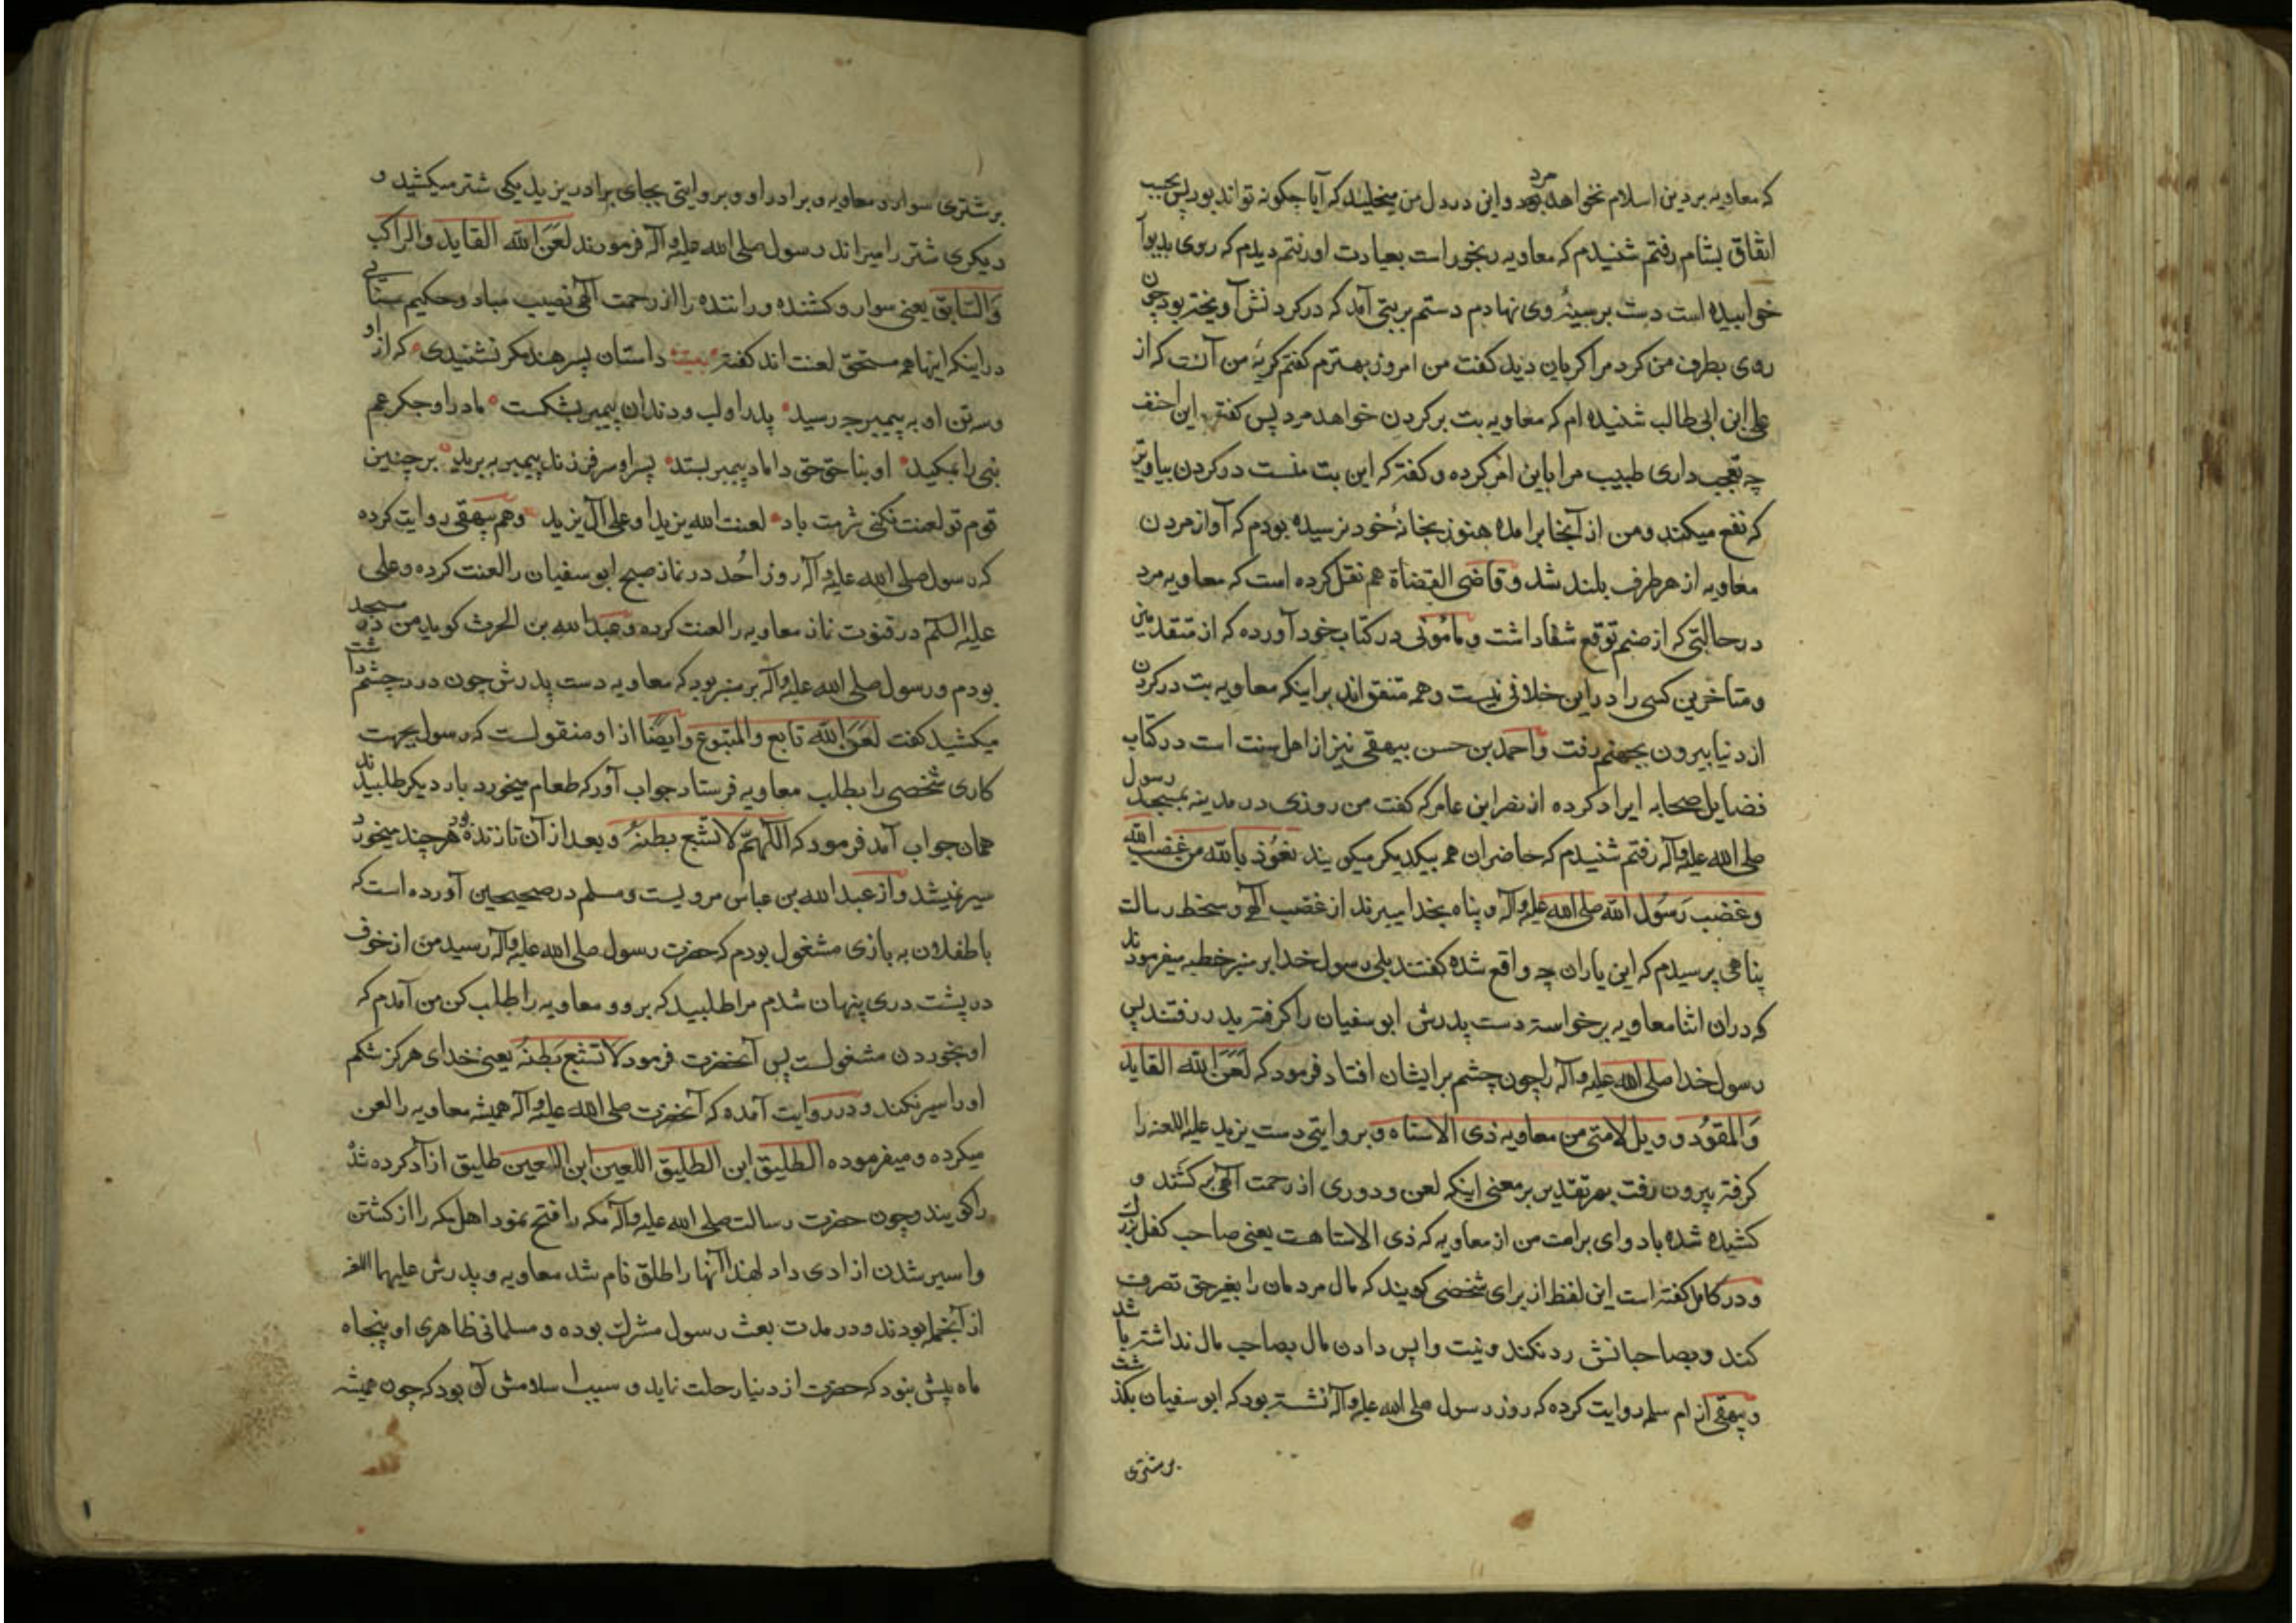 که معاویه بر دین اسلام نخواهد مرد و این در دل من میخلید که آیا چکونه تواند بود پس بحسب
اتفاق بشام رفتم شنیدم که معاویه رنجور است بعیادت او رفتم دیدم که روی بدیوا
خوابیده است دست بر سینهٔ وی نهادم دستم بر بتی آمد که در کردنش آویخته بود چون
روی بطرف من کرد مرا کریان دید کفت من امروز بهترم کفتم کریهٔ من آنست که از
علی ابن ابی طالب شنیده ام که معاویه بت بر کردن خواهد مرد پس کفت این احنف
چه تعجب داری طبیب مرا باین امر کرده و کفته که این بت منست در کردن بیاویز
که نفع میکند و من از آنجا برامده هنوز بخانهٔ خود نرسیده بودم که آواز مردن
معاویه از هر طرف بلند شد و قاضی القضاة هم نقل کرده است که معاویه مرد
در حالتی که از صنم توقع شفا داشت و مامونی در کتاب خود آورده که از متقدمین
و متاخرین کسی را در این خلافی نیست و همه متفق اند بر اینکه معاویه بت در کردن
از دنیا بیرون بجهنم رفت و احمد بن حسن بیهقی نیز از اهل سنت است در کتاب
فضایل صحابه ایراد کرده از نصر ابن عامر که کفت من روزی در مدینه بمسجد رسول
صلی الله علیه وآله رفتم شنیدم که حاضران همه بیکدیکر میکویند نعوذ بالله من غضب الله
وغضب رَسُول الله صلی الله علیه وآله و پناه بخدا میبرند از غضب الهی و سخط رسالت
پناهی پرسیدم که این یاران چه واقع شده کفتند بلی رسول خدا بر منبر خطبه میفرمودند
که دران اثنا معاویه برخواسته دست پدرش ابو سفیان را کرفته بدر رفتند پس
رسول خدا صلی الله علیه وآله را چون چشم بر ایشان افتاد فرمود که لَعَنَ الله القاید
وَالمقوُد و ویل لامتی من معاویه ذی الاستاه و بروایتی دست یزید علیه اللعنه را
کرفته بیرون رفت بهر تقدیر بر معنی اینکه لعن و دوری از رحمت الهی بر کشند و
کشیده شده باد و وای بر امت من از معاویه که ذی الاستاهست یعنی صاحب کفل بزرك
و در کامل کفته است این لفظ از برای شخصی کویند که مال مردمان را بغیر حق تصرف
کند و بصاحبانش رد نکند و نیت واپس دادن مال بصاحب مال نداشته باشد
و بیهقی از ام سلمه روایت کرده که روز رسول صلی الله علیه وآله نشسته بود که ابو سفیان بکذشت
بر شتری
بر شتری سوار و معاویه و برادر او و بروایتی بجای برادر یزید یکی شتر میکشید و
دیکری شتر را میراند رسول صلی الله علیه وآله فرمودند لَعَنَ الله القاید والراکب
وَالسّابق یعنی سوار و کشنده و راننده را از رحمت الهی نصیب مباد و حکیم سنائی
در اینکه اینها هم مستحق لعنت اند کفته بیت داستان پسر هند مکر نشنیدی که از او
و سه تن او به پیمبر چه رسید پدر او لب و دندان پیمبر بشکست مادر او جکر عم
نبی را بمکید او بناحق حق داماد پیمبر بستد پسر او سر فرزند پیمبر ببرید بر چنین
قوم تو لعنت نکنی شرمت باد لعنت الله یزیدا و علی آل یزید وهم بیهقی روایت کرده
که رسول صلی الله علیه وآله روز اُحُد در نماز صبح ابو سفیان را لعنت کرده و علی
علیه السلم در قنوت نماز معاویه را لعنت کرده و عبدالله بن الحرث کوید من در مسجد
بودم و رسول صلی الله علیه وآله بر منبر بود که معاویه دست پدرش چون درد چشم داشت
میکشید کفت لَعَنَ الله تابع والمتبوع وایضًا از او منقولست که رسول بجهت
کاری شخصی را بطلب معاویه فرستاد جواب آورد که طعام میخورد بار دیکر طلبیدند
همان جواب آمد فرمود که اللّهمّ لا تشبع بطنهُ و بعد از آن تا زنده بود هر چند میخورد
سیر نمیشد و از عبدالله بن عباس مرویست و مسلم در صحیحین آورده است که
با طفلان به بازی مشغول بودم که حضرت رسول صلی الله علیه وآله رسید من از خوف
در پشت دری پنهان شدم مرا طلبید که برو و معاویه را طلب کن من آمدم که
او بخوردن مشغولست پس آنحضرت فرمود لا تشبع بَطنهُ یعنی خدای هرکز شکم
او را سیر نکند و در روایت آمده که آنحضرت صلی الله علیه وآله همیشه معاویه را لعن
میکرده و میفرموده الطلیق ابن الطلیق اللعین ابن اللعین طلیق ازاد کرده شده
را کویند و چون حضرت رسالت صلی الله علیه وآله مکه را فتح نمود اهل مکه را از کشتن
و اسیر شدن ازادی داد لهذا آنها را طلق نام شد معاویه و پدرش علیهما اللعنه
از آنجمله بودند و در مدت بعث رسول مشرك بوده و مسلمانی ظاهری او پنجاه
ماه پیش نبود که حضرت از دنیا رحلت نماید و سبب اسلامش آن بود که چون همیشه